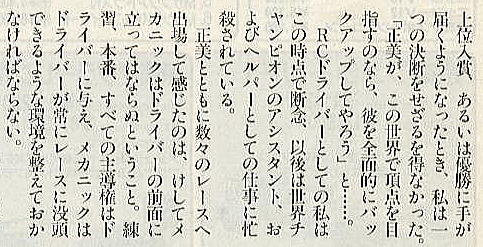 上位入賞、あるいは優勝に手が
届くようになったとき、私は一
つの決断をせざるを得なかった
「正美が、この世界で頂点を目
指すのなら、彼を全面的にバッ
クアップしてやろう」と……。
　ＲＣドライバーとしての私は
この時点で断念、以後は世界チ
ャンピオンのアシスタント、お
よびヘルパーとしての仕事に忙
殺されている。
　正美とともに数々のレースへ
出場して感じたのは、けしてメ
カニックはドライバーの前面に
立ってはならぬということ。練
習、本番、すべての主導権はド
ライバーに与え、メカニックは
ドライバーが常にレースに没頭
できるような環境を整えておか
なければならない。